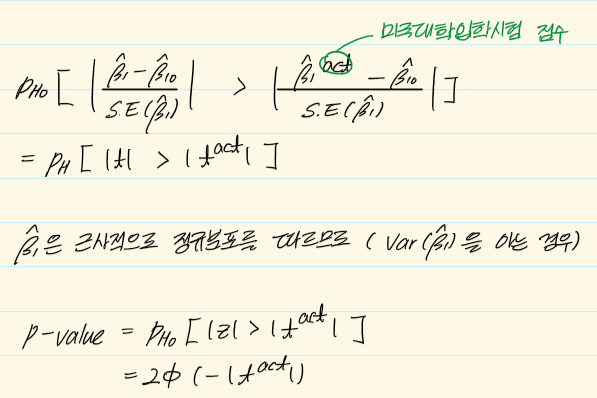 미국대학입학시험 점수
P_{H0} [ | (β̂₁ - β̂₁₀) / S.E(β̂₁) | > | (β̂₁^{act} - β̂₁₀) / S.E(β̂₁) | ]
= P_H [ |t| > |t^{act}| ]
β̂₁은 근사적으로 정규분포를 따르므로 ( Var(β̂₁)을 아는 경우)
P-value = P_{H0} [ |z| > |t^{act}| ]
= 2Φ (-|t^{act}|)